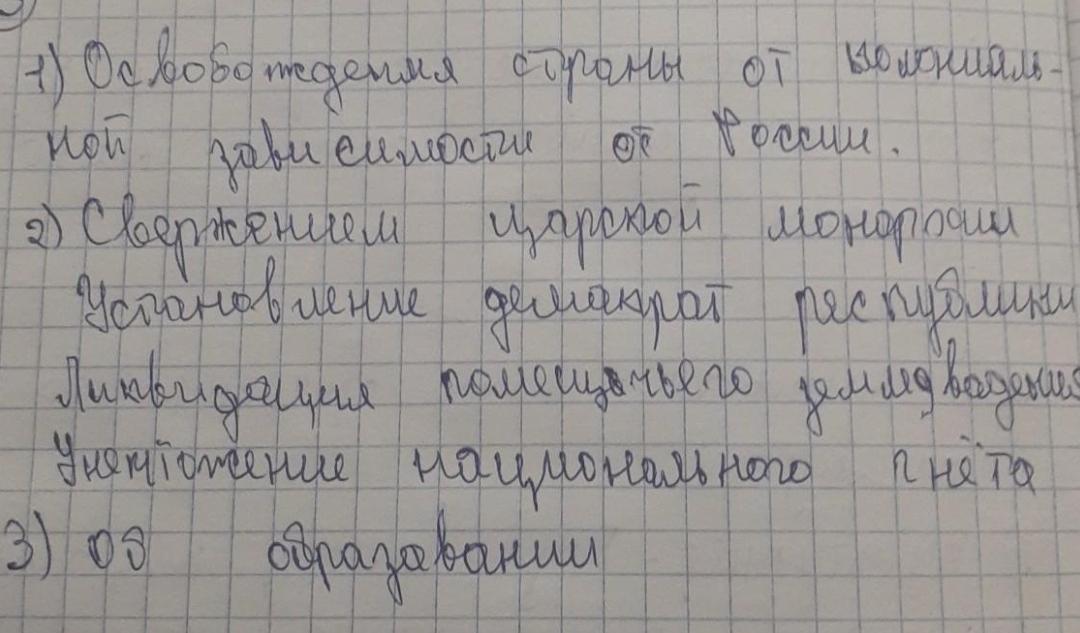 1) Освобождения страны от колониаль-
ной зависимости от России.
2) Свержением царской монархии
Установление демократ республики
Ликвидация помещичьего землядвадения
Унечтожение национального гнёта
3) Об образовании